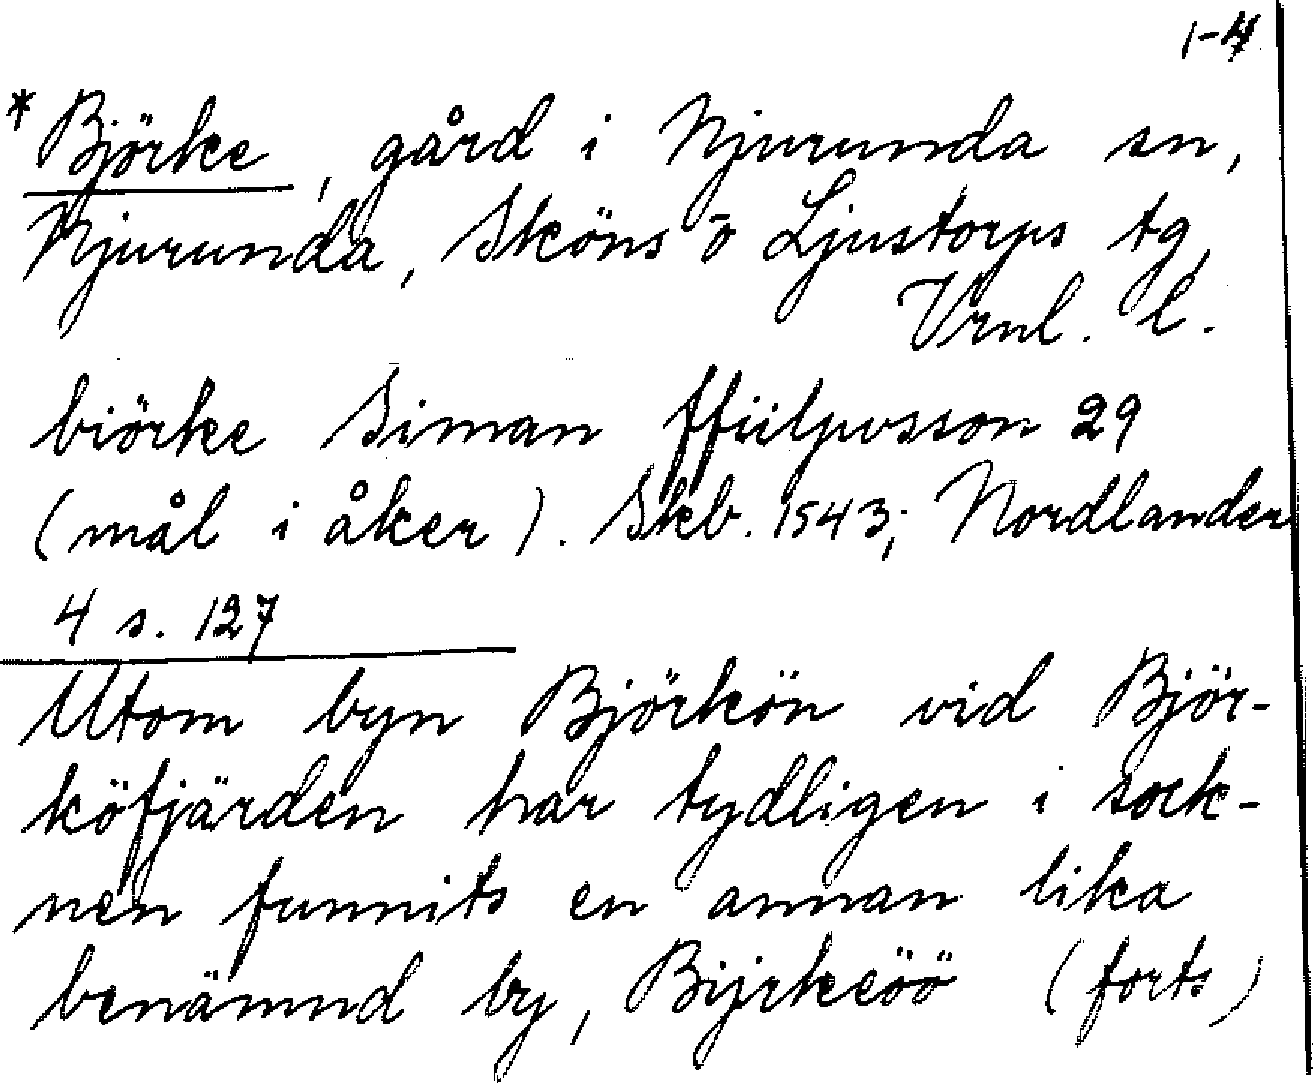 1-4
* Björke, gård i Njurunda sn,
Njurunda, Sköns o Ljustorps tg,
Vrnl. l.
biörke Siman ffiilpusson 29
(mål i åker). Skb. 1543; Nordlander
4 s. 127
Utom byn Björkön vid Björ-
köfjärden har tydligen i sock-
nen funnits en annan lika
benämnd by, Bijrkeöö (forts)